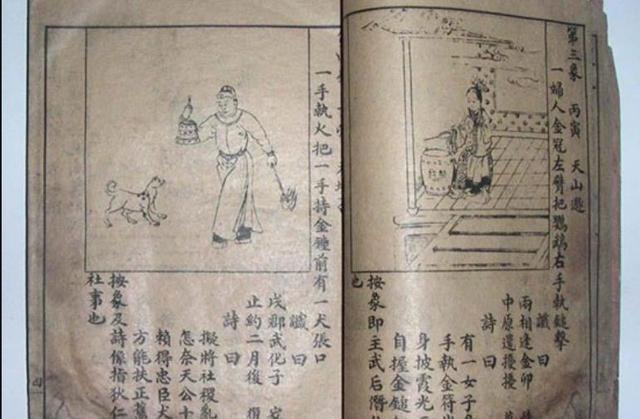 第三象 丙寅 天山遯
一婦人金冠左臂把鸚鵡右手執鎚擊
讖曰
兩相逢金卯
中原還擾擾
詩曰
有一女子
手執金符
身披霞光
自握金鎚
按象即主武后僭
也
一手執火把一手持金鐘前有一犬張口
讖曰
武化子
止約二月後
詩曰
擬將社稷亂
怎奈天公十
賴得忠臣犬
方能扶正舊
按象及詩像指狄仁
社事也
四